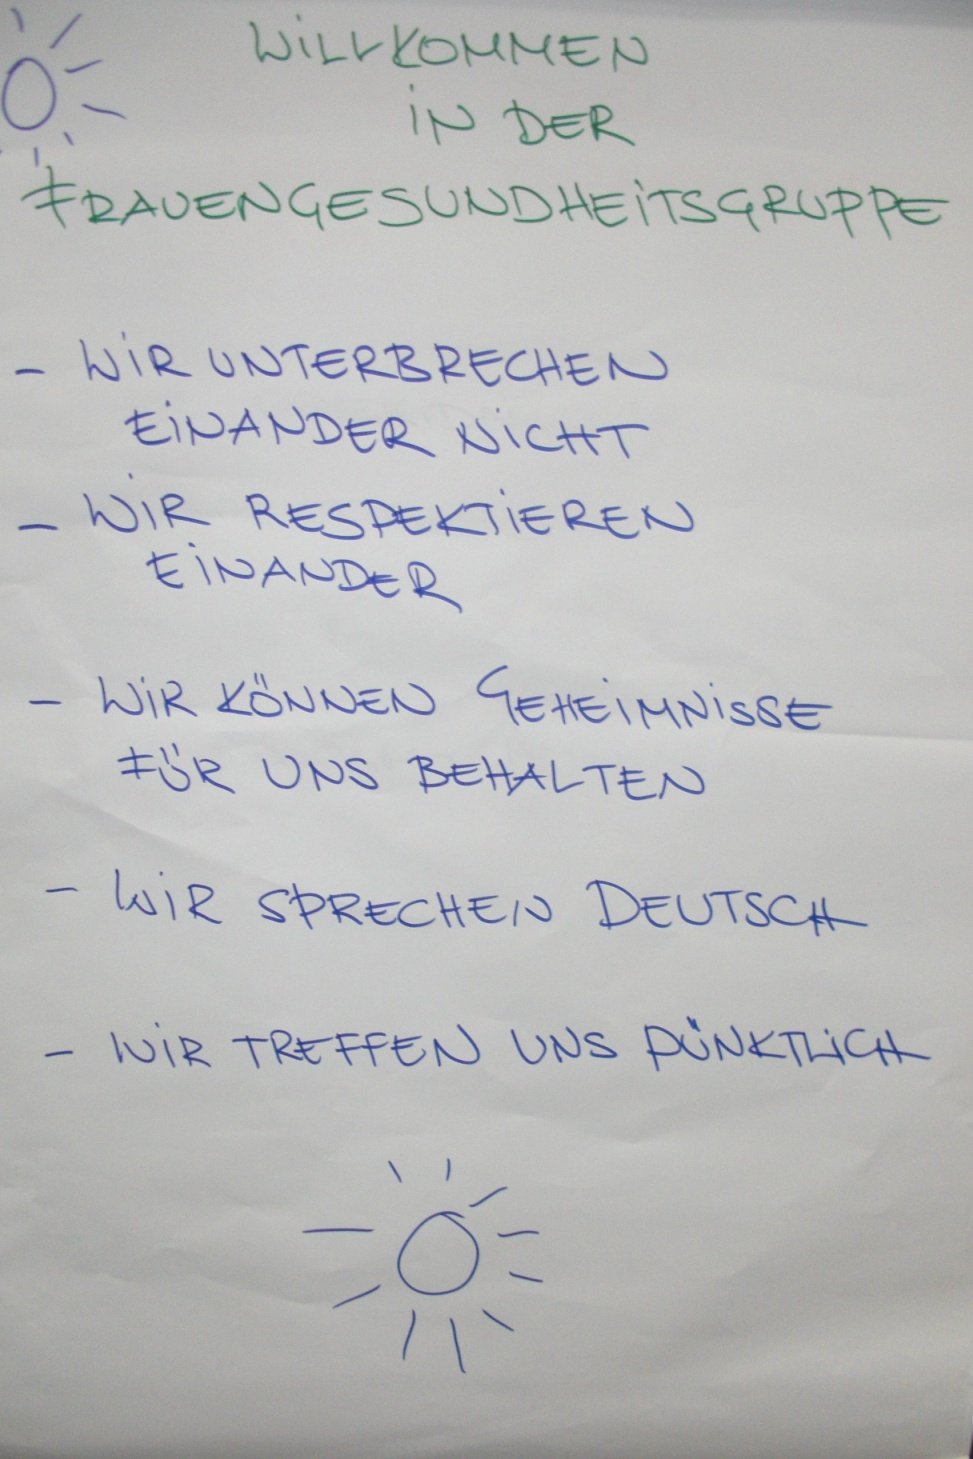 WiLLKOMMEN
iN DER
FRAUENGESUNDHEiTSGRUPPE
- WiR UNTERBRECHEN
EiNANDER NiCHT
- WiR RESPEKTiEREN
EiNANDER
- WiR KÖNNEN GEHEiMNiSSE
FÜR UNS BEHALTEN
- WiR SPRECHEN DEUTSCH
- WiR TREFFEN UNS PÜNKTLiCH